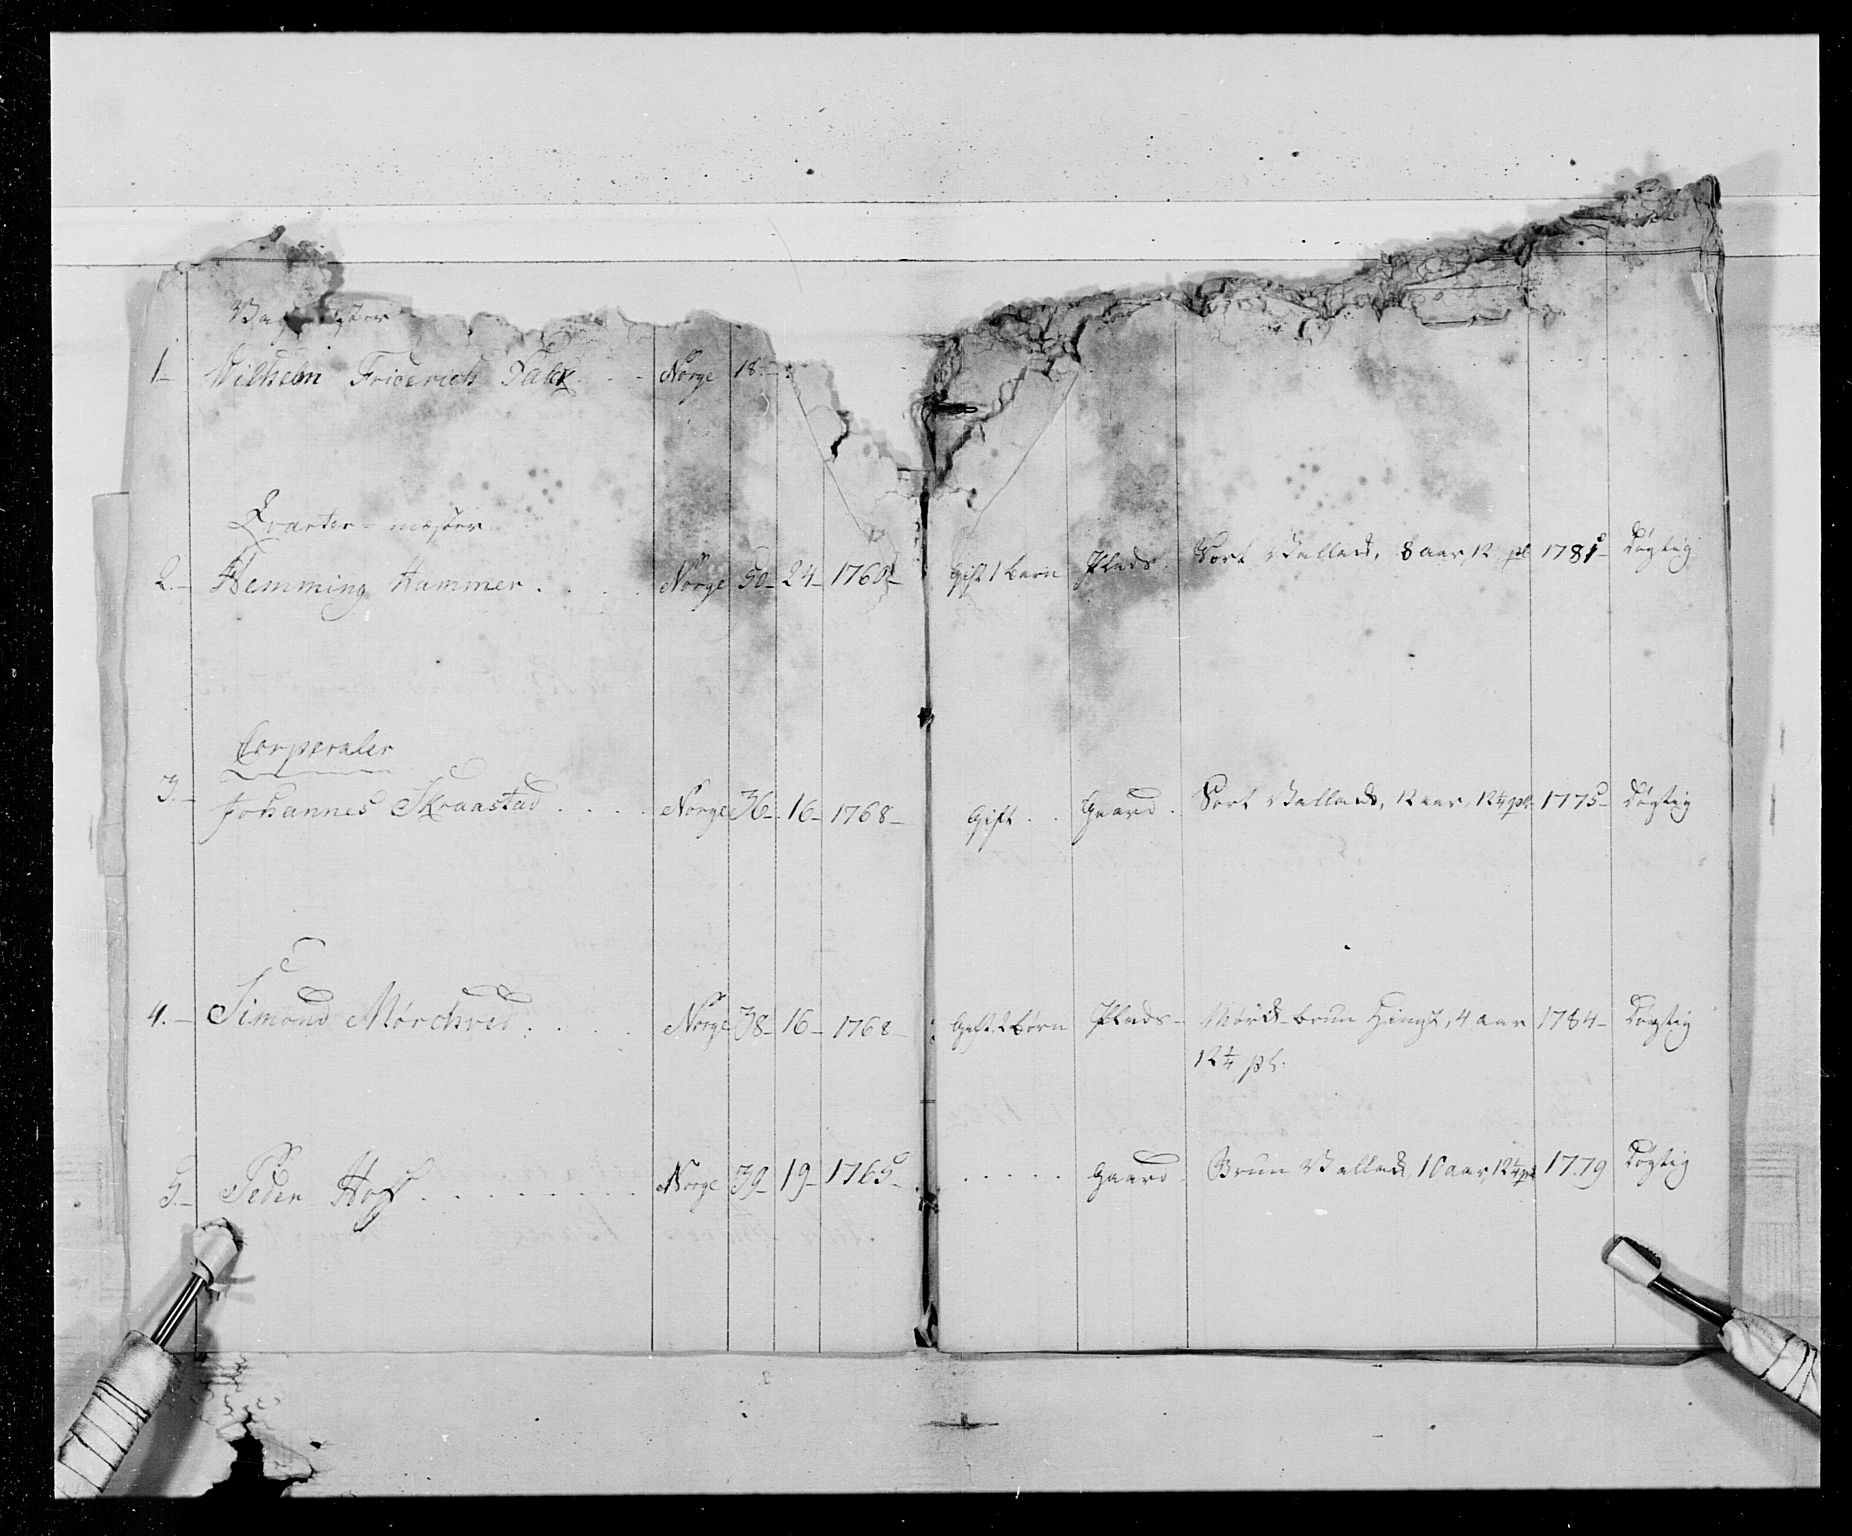 1- Wilhelm Friderich Falck . . - Norge 18.-
Qvarter-mester
2.- Hemming Hammer . . . . Norge 50- 24- 1760- Gift 1 barn Plads. Sort Vallack, 8 aar, 12 pl 1781- Dygtig
Corperaler
3.- Johannes Skraastad . . . . Norge 36- 16- 1768- Gift . . Gaard . Sort Vallack, 12 aar, 12¼ pl. 1775- Dygtig
4.- Simond Mørchved . . . . Norge 38- 16- 1768- Gift 2 børn Plads- Mørck-brun Hingst, 4 aar 1784- Dygtig
12¼ pl.
5.- Peder Hoff . . . . . . . . . Norge 39- 19- 1765- . . . . . Gaard . Brun Vallack, 10 aar, 12¼ pl 1779 Dygtig